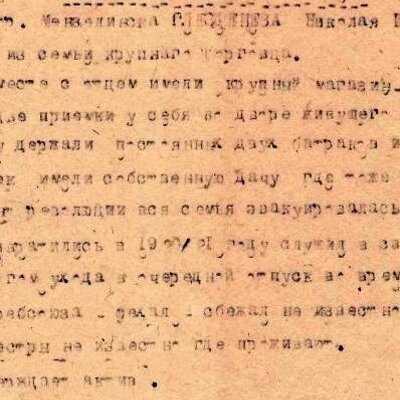 гр. Мензелинска Николая
из семьи крупнаго торговца.
месте с отцем имели крупный магазин
две приемки у себя во дворе живущего
у держали постоянных двух батраков и
ек имели собственную дачу где тоже
революции вся семья эвакуировалась
звратились в 1920/21 году служил в за
том ухода в очередной отпуск во врем
ребсоюза бежал не известно
естры не известно где проживают.
ерждает актив .